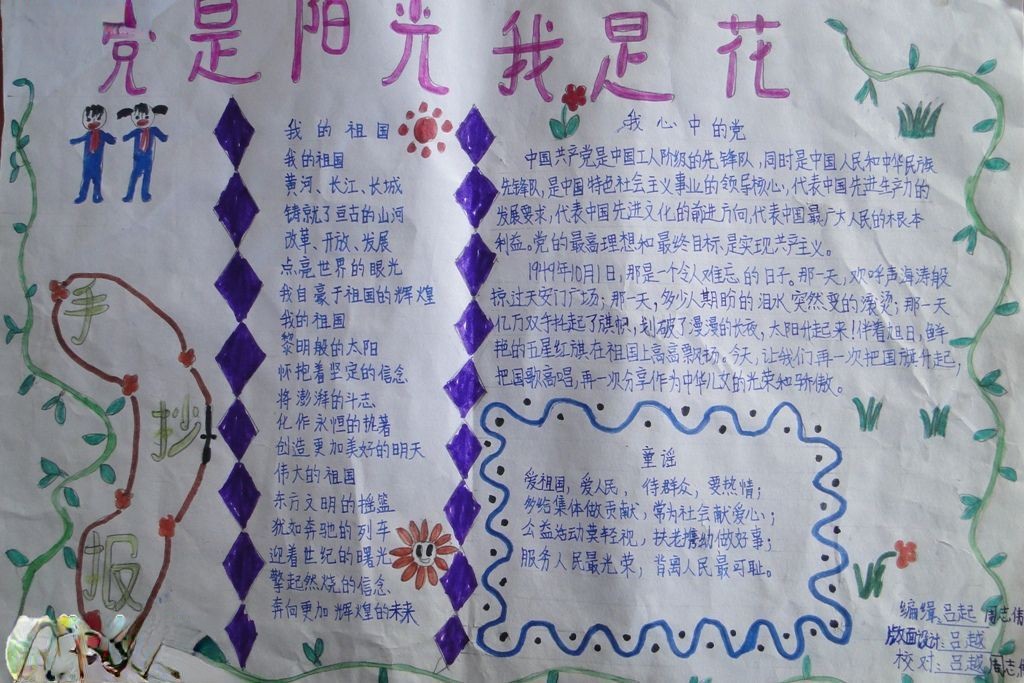 党是阳光我是花
手抄报
我的祖国
我的祖国
黄河、长江、长城
铸就了亘古的山河
改革、开放、发展
点亮世界的眼光
我自豪于祖国的辉煌
我的祖国
黎明般的太阳
怀抱着坚定的信念
将澎湃的斗志
化作永恒的执著
创造更加美好的明天
伟大的祖国
东方文明的摇篮
犹如奔驰的列车
迎着世纪的曙光
擎起燃烧的信念
奔向更加辉煌的未来
我心中的党
中国共产党是中国工人阶级的先锋队,同时是中国人民和中华民族
先锋队,是中国特色社会主义事业的领导核心,代表中国先进生产力的
发展要求,代表中国先进文化的前进方向,代表中国最广大人民的根本
利益。党的最高理想和最终目标是实现共产主义。
1949年10月1日,那是一个令人难忘的日子。那一天,欢呼声海涛般
掠过天安门广场;那一天,多少人期盼的泪水突然变的滚烫;那一天
亿万双手托起了旗帜,划破了漫漫的长夜,太阳升起来!伴着旭日,鲜
艳的五星红旗在祖国上高高飘扬。今天,让我们再一次把国旗升起,
把国歌高唱,再一次分享作为中华儿女的光荣和骄傲。
童谣
爱祖国,爱人民,侍群众,要热情;
多给集体做贡献,常为社会献爱心;
公益活动莫轻视,扶老携幼做好事;
服务人民最光荣,背离人民最可耻。
编缉:吕起 周志伟
版面设计:吕越
校对:吕越 周志伟